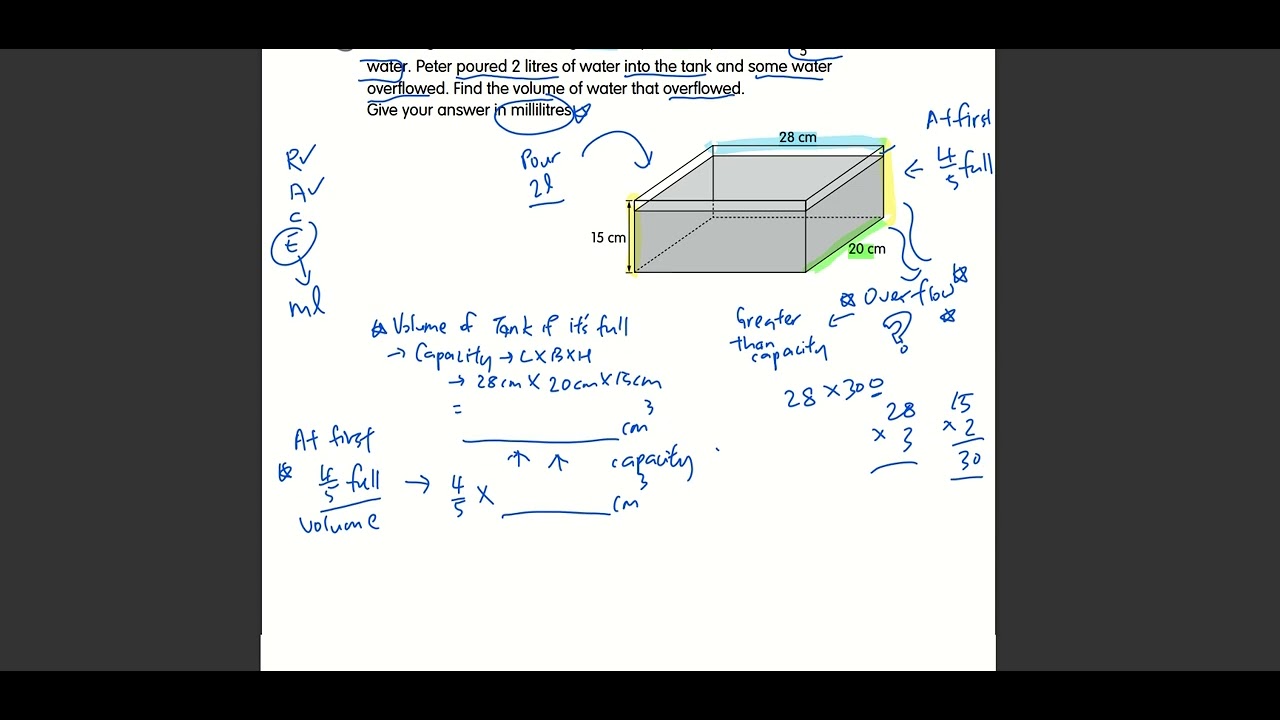 5
water. Peter poured 2 litres of water into the tank and some water
overflowed. Find the volume of water that overflowed.
Give your answer in millilitres.
R✓
A✓
C
E
ml
Pour
2l
28 cm
15 cm
20 cm
At first
4/5 full
Overflow
?
Greater
than
capacity
Volume of Tank if it's full
→ Capacity → L×B×H
→ 28cm × 20cm × 15cm
= cm³
capacity
At first
4/5 full
volume
→ 4/5 × cm³
28 × 300
28
× 3
15
× 2
30